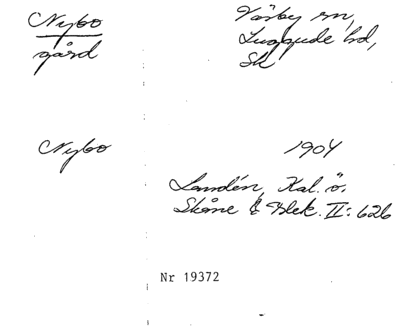 Nybo
gård
Väsby sn,
Luggude hd,
Sk
Nybo
1904
Landén, Kal. ö.
Skåne & Blek. II: 626
Nr 19372